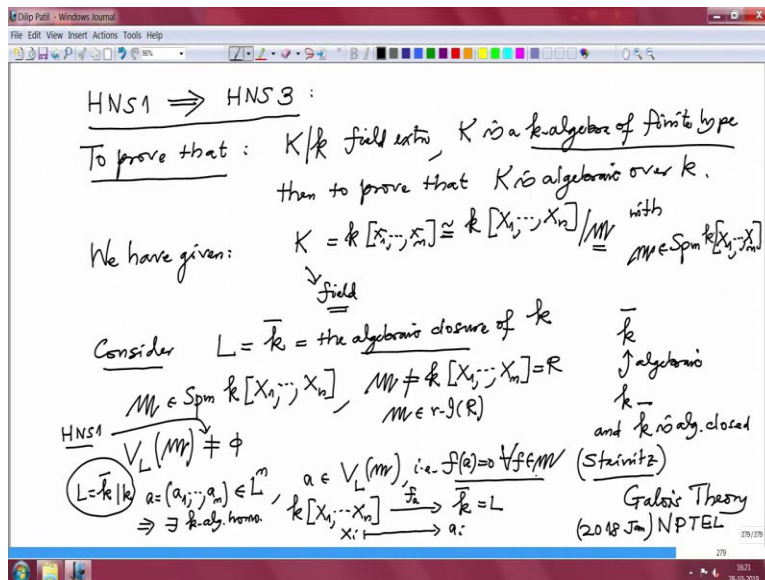 Dilip Patil - Windows Journal
File Edit View Insert Actions Tools Help
HNS1 ⇒ HNS3 :
To prove that : K|k field extn, K is a k-algebra of finite type
then to prove that K is algebraic over k.
We have given: K = k[x₁,…,xₙ] ≅ k[X₁,…,Xₙ]/𝔪 with
𝔪 ∈ Spm k[X₁,…,Xₙ]
field
Consider L = k̄ = the algebraic closure of k
k̄
↑ algebraic
k
and k̄ is alg. closed
(Steinitz)
𝔪 ∈ Spm k[X₁,…,Xₙ], 𝔪 ≠ k[X₁,…,Xₙ] = R
𝔪 ∈ r-𝔍(R)
HNS1
V_L(𝔪) ≠ ϕ
L = k̄|k a = (a₁,…,aₙ) ∈ Lⁿ, a ∈ V_L(𝔪), i.e. f(a)=0 ∀ f ∈ 𝔪
⇒ ∃ k-alg. homo. k[X₁,…,Xₙ] —fₐ→ k̄ = L
Xᵢ ↦ aᵢ
Galois Theory
(2018 Jan) NPTEL
279/279
279
16:21
26-10-2019